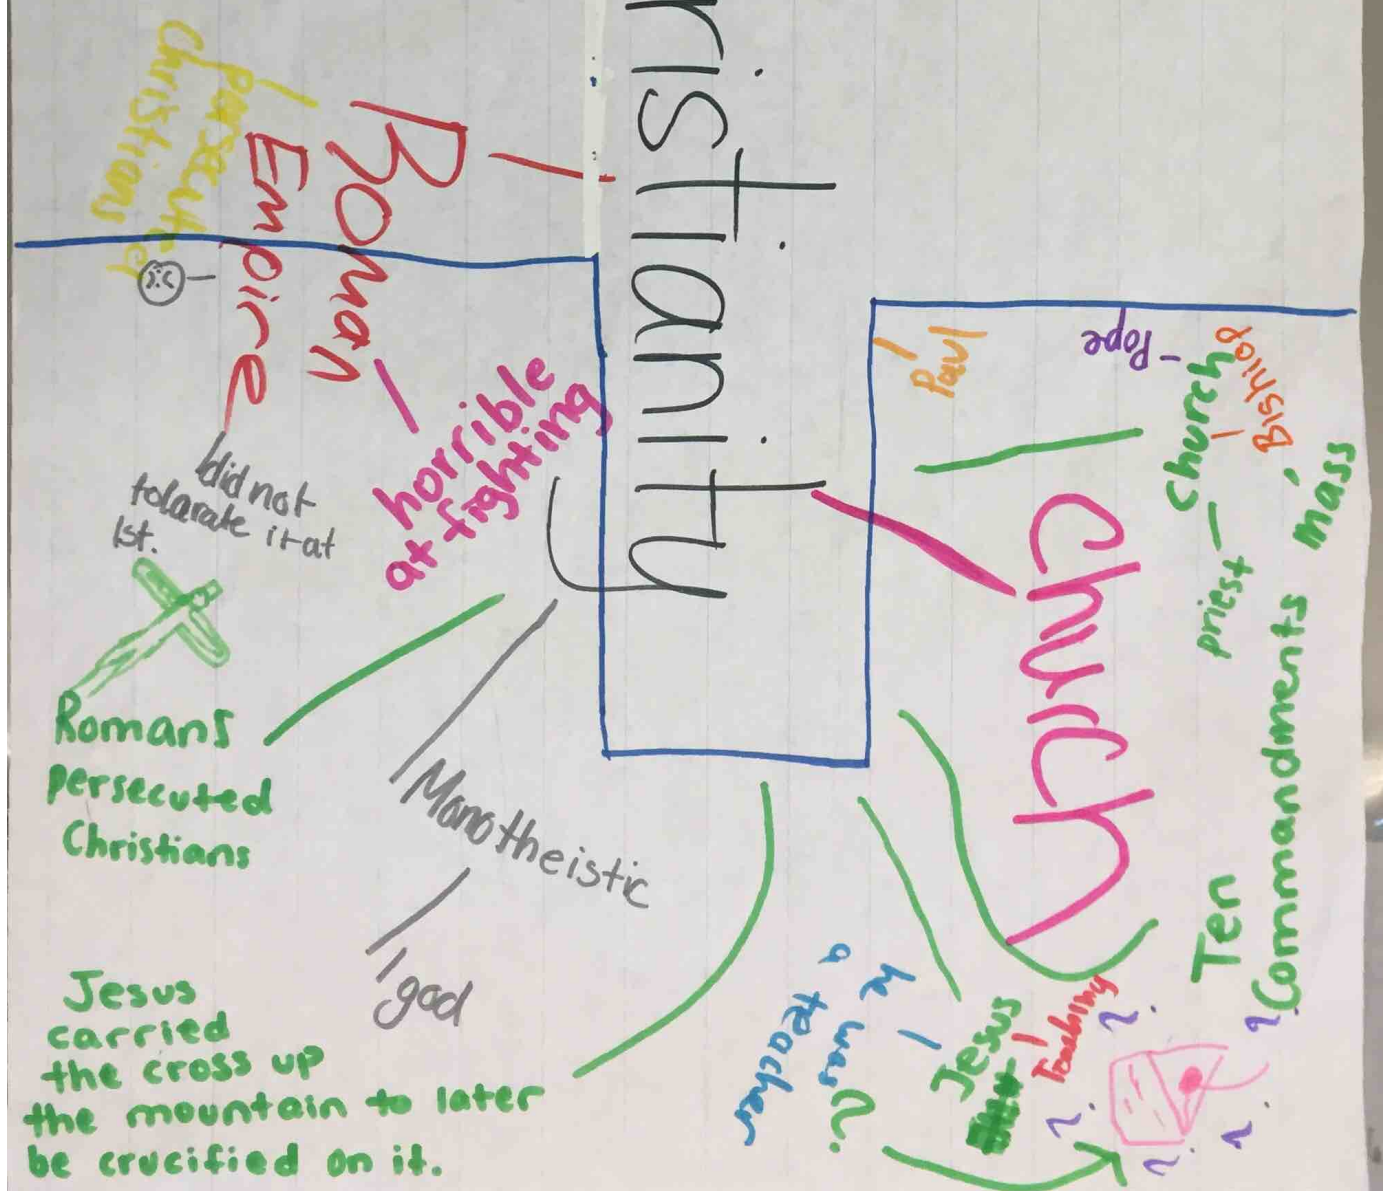 ristianity
Roman
Empire
persecuted
christians
:c
did not
tolarate it at
1st.
horrible
at fighting
Romans
persecuted
Christians
Monotheistic
1 god
Jesus
carried
the cross up
the mountain to later
be crucified on it.
Church
Paul
Pope
Church
Bishiog
priest
mass
Ten
Commandments
Jesus
Teaching
he was
a teacher
?
?
?
?
?
?